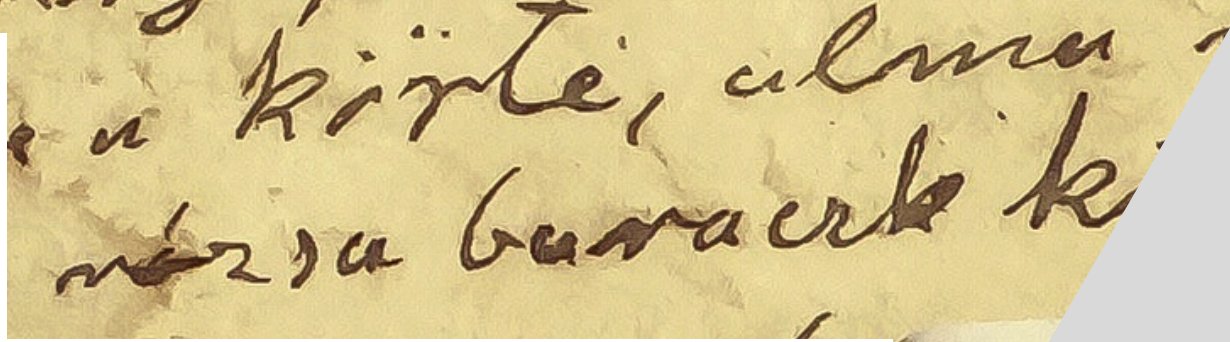 a körte, alma
rózsa baraczk